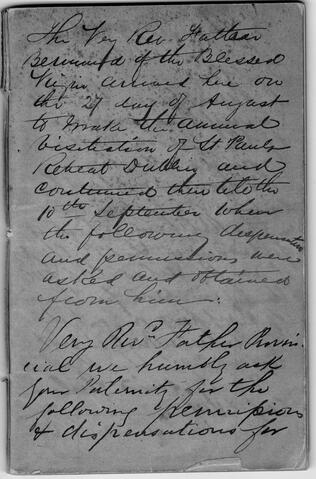 The Very Rev Father
Bernard of the Blessed
Virgin arrived here on
the 27 day of August
to make the annual
visitation of St Pauls
Retreat Dublin and
continued there till the
10th September when
the following dispensations
and permissions were
asked and obtained
from him:
Very Revd Father Provin-
cial we humbly ask
your Paternity for the
following permissions
& dispensations for